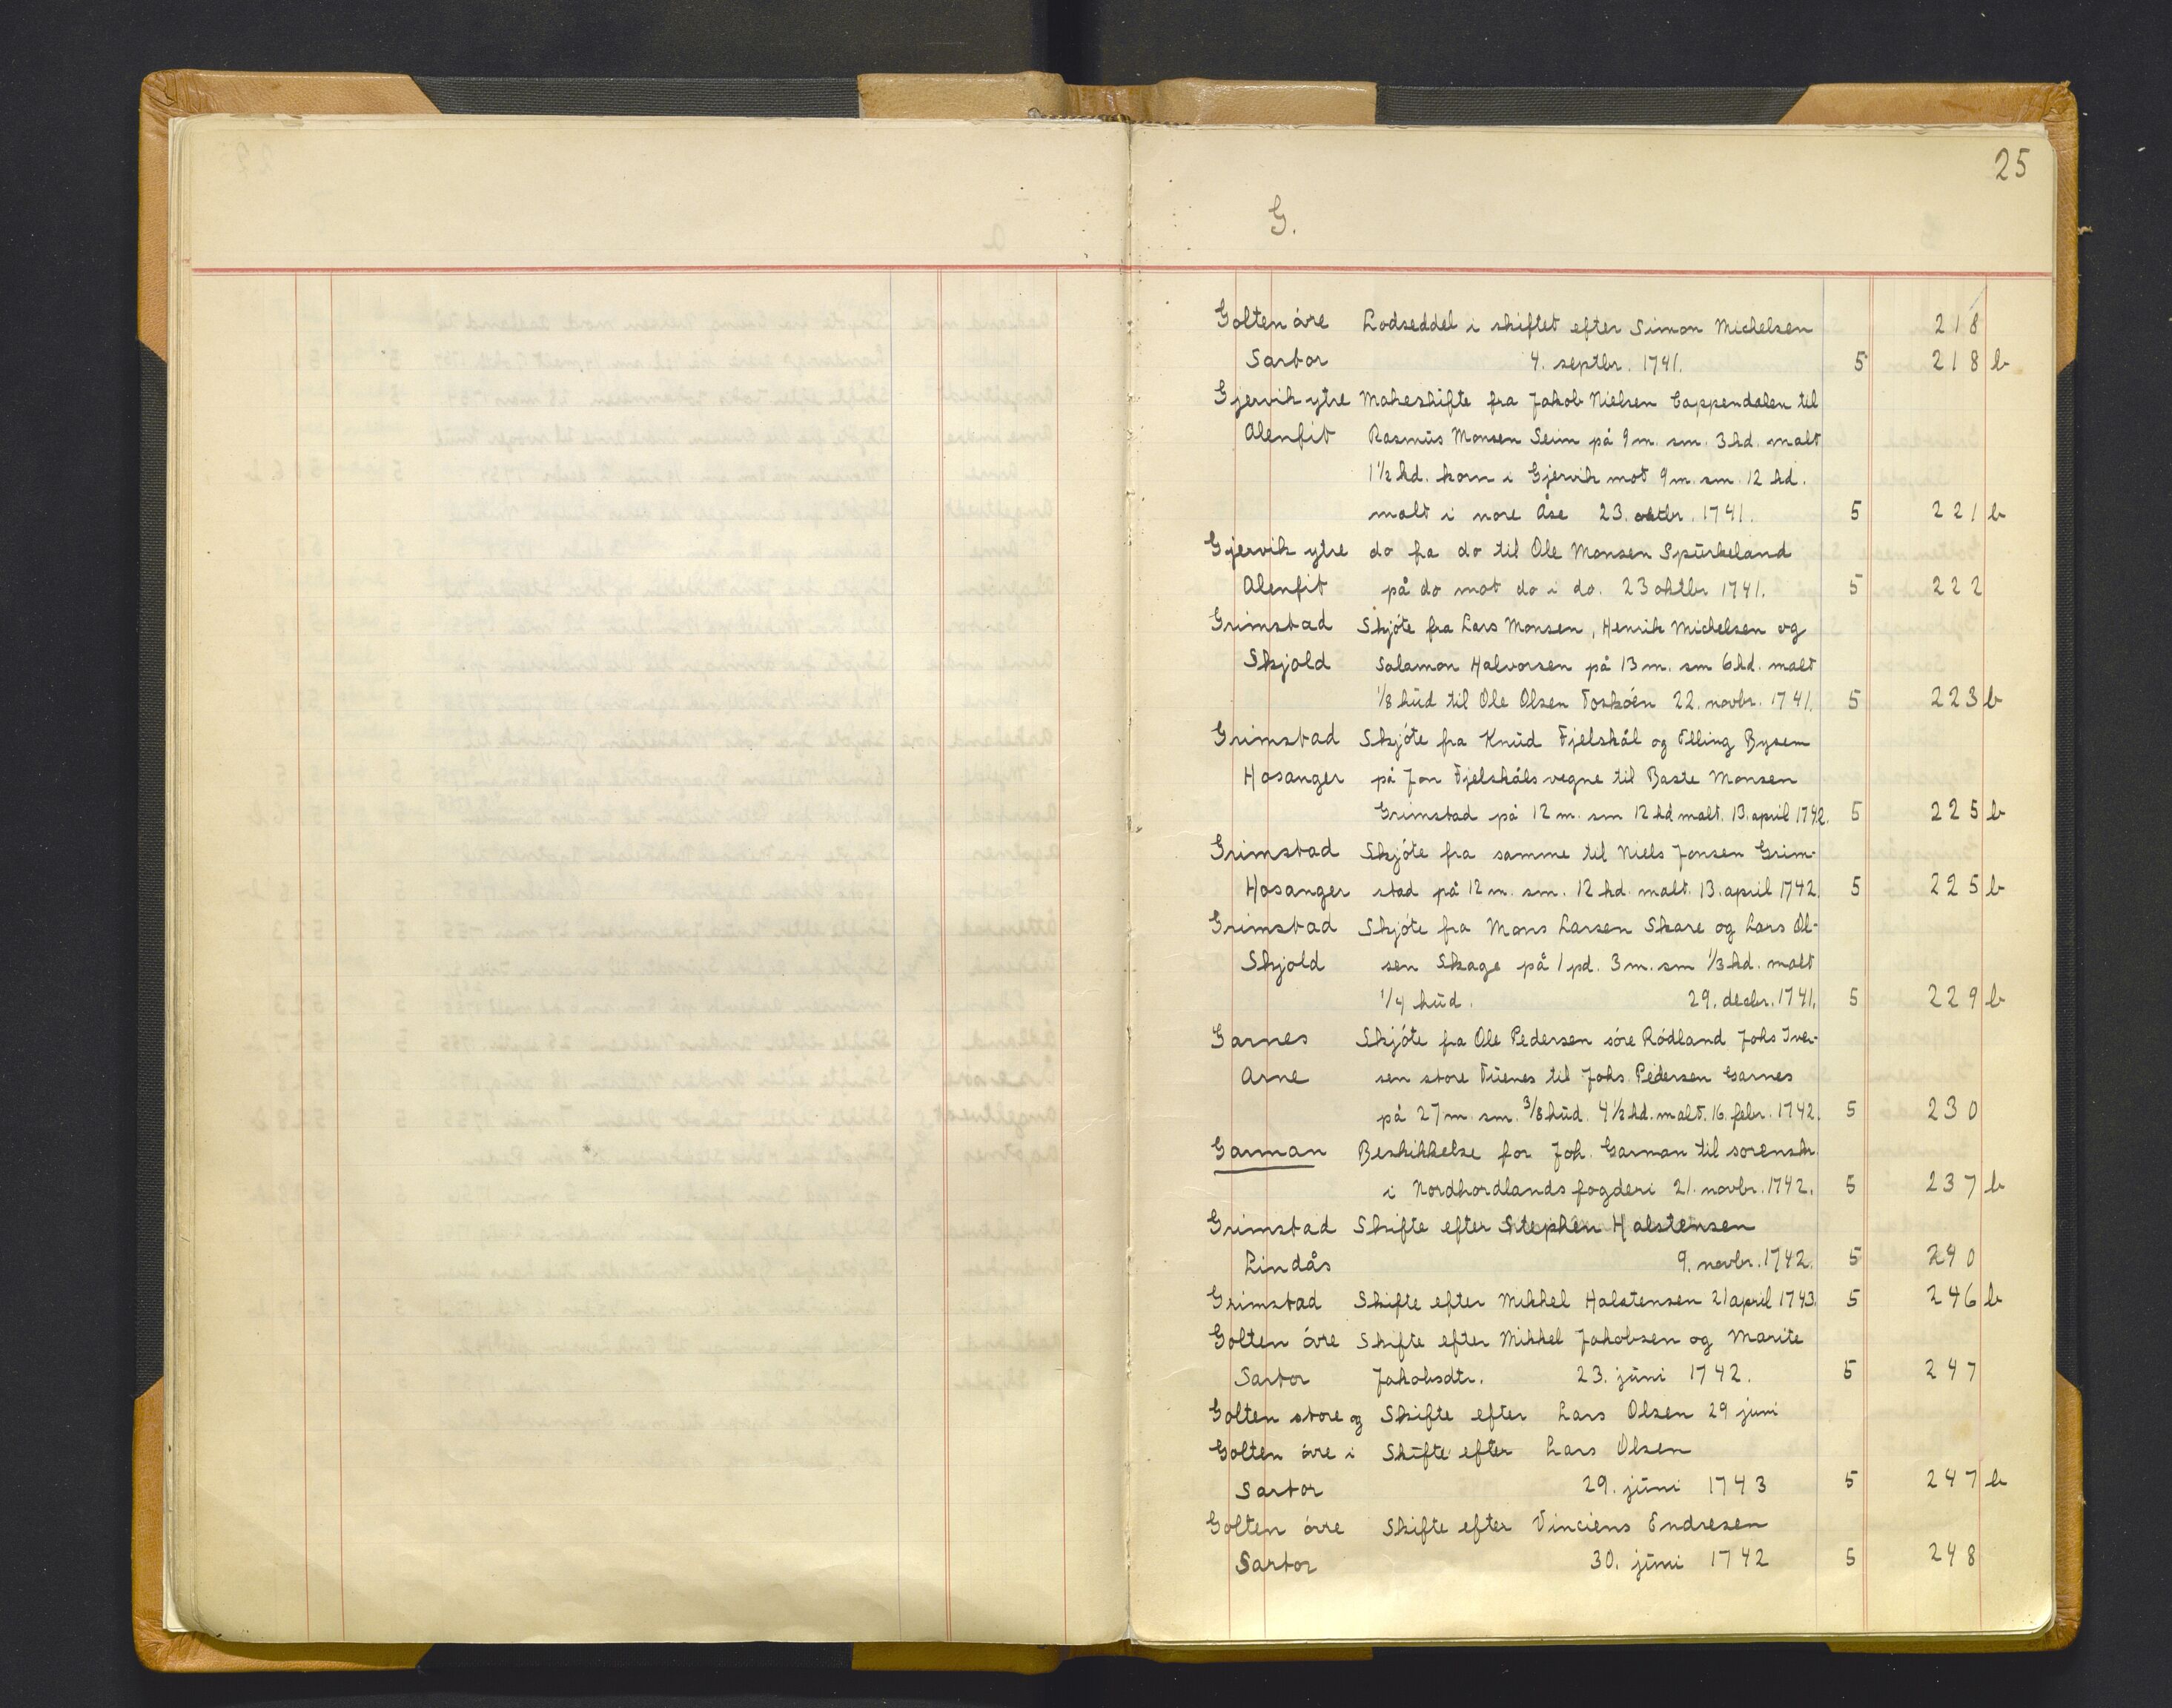 25
G.
Golten övre Lodseddel i skiftet efter Simon Michelsen 218
Sartor 4. septbr. 1741. 5 218 b
Gjervik ytre Makeskifte fra Jakob Nielsen Cappendalen til
Alenfit Rasmus Monsen Seim på 9 m. sm. 3 hd. malt
1 1/2 hd. korn i Gjervik mot 9 m. sm. 12 hd.
malt i nore Åse 23. oktbr. 1741. 5 221 b
Gjervik ytre do fra do til Ole Monsen Spurkeland
Alenfit på do mot do i do. 23 oktbr 1741. 5 222
Grimstad Skjöte fra Lars Monsen, Henrik Michelsen og
Skjold Salamon Halvorsen på 13 m. sm 6 hd. malt
1/8 hud til Ole Olsen Tosköen 22. novbr. 1741. 5 223 b
Grimstad Skjöte fra Knud Fjelskål og Elling Bysem
Hosanger på Jon Fjelskåls vegne til Baste Monsen
Grimstad på 12 m. sm 12 hd malt. 13. april 1742. 5 225 b
Grimstad Skjöte fra samme til Niels Jonsen Grim-
Hosanger stad på 12 m. sm. 12 hd. malt. 13. april 1742. 5 225 b
Grimstad Skjöte fra Mons Larsen Skare og Lars Ol-
Skjold sen Skage på 1 pd. 3 m. sm 1/3 hd. malt
1/4 hud. 29. decbr. 1741. 5 229 b
Garnes Skjöte fra Ole Pedersen söre Rödland Johs Iver-
Arne sen store Tuenes til Johs. Pedersen Garnes
på 27 m. sm. 3/8 hud. 4 1/2 hd. malt. 16. febr. 1742. 5 230
Garman Beskikkelse for Joh. Garman til sorenskr.
i Nordhordlands fogderi 21. novbr. 1742. 5 237 b
Grimstad Skifte efter Stephen Halstensen
Lindås 9. novbr. 1742. 5 240
Grimstad Skifte efter Mikkel Halstensen 21 april 1743. 5 246 b
Golten övre Skifte efter Mikkel Jakobsen og Marite
Sartor Jakobsdtr. 23. juni 1742. 5 247
Golten store og Skifte efter Lars Olsen 29 juni
Golten övre i Skifte efter Lars Olsen
Sartor 29. juni 1743 5 247 b
Golten övre Skifte efter Vinciens Endresen
Sartor 30. juni 1742 5 248